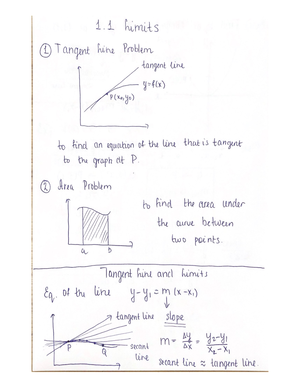 1.1 Limits
① Tangent Line Problem
tangent line
y=f(x)
P(x₀,y₀)
to find an equation of the line that is tangent
to the graph at P.
② Area Problem
to find the area under
the curve between
two points.
a b
Tangent line and Limits
Eq. of the line y-y₁ = m (x-x₁)
slope
tangent line
P
Q
secant
line
m = Δy/Δx = y₂-y₁/x₂-x₁
secant line ≈ tangent line